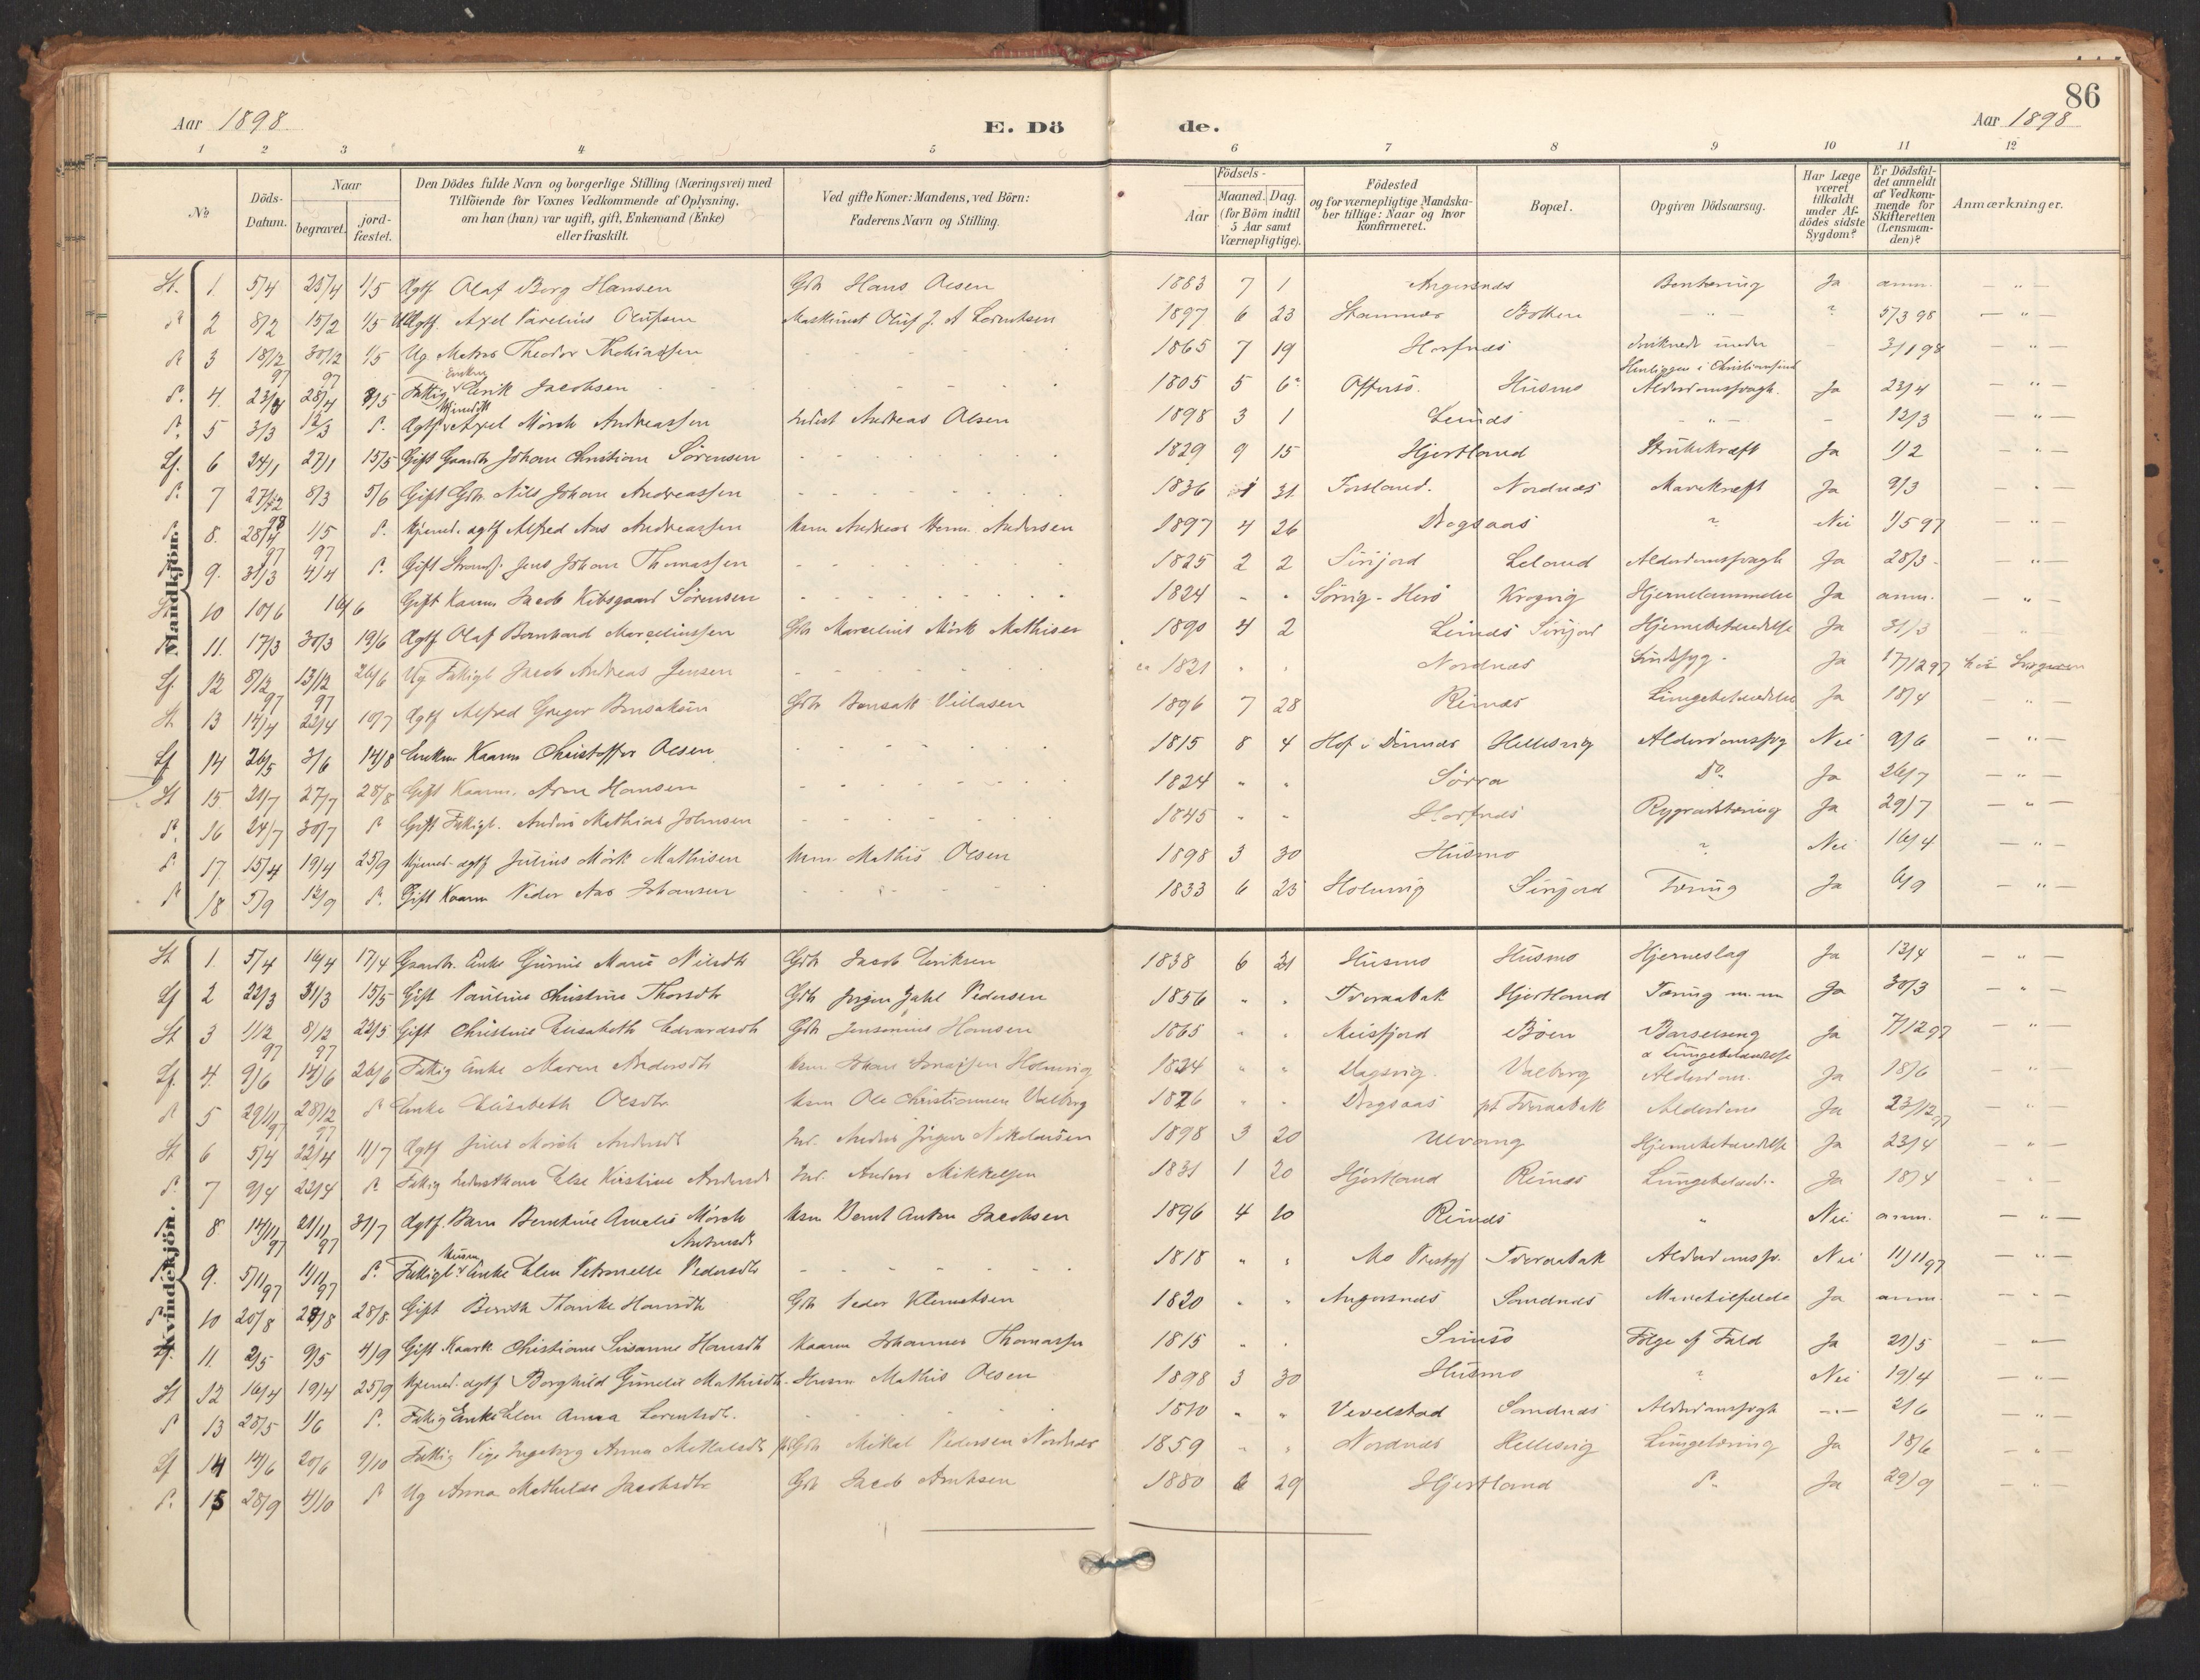 86
Aar 1898. E. Dö de. Aar 1898
1 2 3 4 5 6 7 8 9 10 11 12
No
Döds-Datum.
Naar
begravet. jord-fæstet.
Den Dödes fulde Navn og borgerlige Stilling (Næringsvei) med
Tilföiende for Voxnes Vedkommende af Oplysning,
om han (hun) var ugift, gift, Enkemand (Enke)
eller fraskilt.
Ved gifte Koner: Mandens, ved Börn:
Faderens Navn og Stilling.
Födsels-
Aar Maaned. Dag.
(for Börn indtil
5 Aar samt
Værnepligtige).
Födested
og for værnepligtige Mandska-
ber tillige: Naar og hvor
konfirmeret.
Bopæl.
Opgiven Dödsaarsag.
Har Læge
været
tilkaldt
under Af-
dödes sidste
Sygdom?
Er Dödsfal-
det anmeldt
af Vedkom-
mende for
Skifteretten
(Lensman-
den)?
Anmærkninger.
Mandkjön.
St. 1. 5/4 25/4 1/5 Ægtf Olaf Borg Hansen Gbr Hans Olsen 1883 7 1 Angersnes Bentæring Ja anm. — " —
2 8/2 15/2 1/5 Axel Parelius Olufsen Maskinist Oluf J. A Lorentzen 1897 6 23 Stamnes Botten - " - ? 5/3 98 — " —
3 18/12 97 30/12 97 1/5 Ug Theodor 1865 7 19 Hofnes Druknede under - 3/1 98 — " —
Henliggen i Christianssund
4. 23/4 28/4 8/5 Fattig Enkm Erik Jacobsen 1805 5 6 Offersø. Husmo Alderdomssvagh. Ja 23/4 — " —
5 3/3 12/3 d. Ægtf Axel Mörch Andreassen Inderst Andreas Olsen 1898 3 1 Leines - " - - 12/3 — " —
Lf. 6 24/1 27/1 15/5 Gift Gaardb Johan Christian Sörensen 1829 9 15 Hjertland Strubekræft Ja 1/2 — " —
7 27/2 8/3 5/6 Gift Gbr. Nils Johan Andreassen 1836 1 31 Forsland. Nordnes Mavekræft Ja 9/3 — " —
8. 28/4 97 1/5 97 d. Hjemd. ægtf Alfred Aas Andreassen Husm Andreas Andersen 1897 4 26 Dagsaas ? Nei 1/5 97 — " —
9. 31/3 4/4 d. Gift Strands. Jens Johan Thomassen 1825 2 2 Sinjord Leland Alderdomssvagh Ja 28/3 — " —
10 10/6 16/6 Gift Kaarm Jacob Kibsgaard Sörensen 1824 - " Sörvig-Herö Krogvig Hjernelammelse Ja anm. — " —
11. 17/3 30/3 19/6 Ægtf Olaf Bernhard Marceliussen Gbr Marcelius Mörk Mathisen 1890 4 2 Leines Sinjord Hjernebetændelse Ja 31/3 — " —
Lf 12 8/12 97 13/12 97 26/6 Ug Fattigl Jacob Andreas Jensen ca 1821 " " Nordnes Sindssyg. Ja 17/12 97
St 13 14/4 23/4 10/7 Ægtf Alfred Greger Bensaksen Gbr Bensak 1896 7 28 Reines Lungebetændelse Ja 18/4 — " —
Lf 14 26/5 3/6 14/8 Enkm Kaarm Christoffer Olsen 1815 8 4 Hof i Dönnes Hellesvig Alderdomssvg Nei 9/6 — " —
St 15. 21/7 27/7 28/8 Gift Kaarm. Arne Hansen 1824 " " Sörra Do Ja 26/7 — " —
16 24/7 30/7 d Gift Fattigl. Anders Mathias Johnsen 1845 " " Hofnes Rygradstæring Ja 29/7 — " —
17. 15/4 19/4 25/9 Hjemd. ægtf Julius Mörk Mathisen Husm Mathis Olsen 1898 3 30 Husmo ? Nei 16/4 — " —
18 5/9 12/9 d. Gift Kaarm Peder Aas Johansen 1833 6 25 Holmvig Sinjord Tæring Ja 6/9 — " —
Kvindekjön.
St 1. 5/4 16/4 17/4 Gaardb. Enke Marie Nilsdtr Gbr Jacob Eriksen 1838 6 21 Husmo Husmo Hjerneslag Ja 13/4 — " —
Lf 2 22/3 31/3 15/5 Gift Pauline Christine Thorsdtr Gbr Jörgen Zahl Pedersen 1856 " " Tverraabak Hjertland Tæring m. m Ja 30/3 — " —
St 3 1/12 97 8/12 97 22/5 Gift Christine Elisabeth Edvardsdtr Gbr Hansen 1865 " " Meisfjord Böen Barselseng Ja 7/12 97 — " —
& Lungebetændelse
Lf. 4. 9/6 14/6 26/6 Fattig Enke Maren Andersdtr Husm Johan Holmvig 1824 " " Valberg Alderdom. Ja 18/6 — " —
5 29/11 97 28/12 97 d Enke Elisabeth Olsdtr Husm Ole Christiansen Valberg 1826 " " Dagsaas pt Tverraabak Alderdom Ja 23/12 97 — " —
St 6 5/4 22/4 11/7 Ægtf Mörch Andersdtr Ind. Anders Jörgen Nikolaisen 1898 3 20 Ulvang Hjernebetændelse Ja 23/4 — " —
7 9/4 22/4 d. Fattig Inderstkone Else Kirstine Andersdtr Ind. Anders Mikkelsen 1831 1 20 Hjertland Reines Lungebetænd. Ja 18/4 — " —
8. 14/11 97 21/11 97 31/7 Ægtf. Barn Berntine Amelie Mörch Antonsdtr Husm Bernt Anton Jacobsen 1896 4 10 Reines " Nei anm. — " —
9. 5/11 97 11/11 97 d. Fattigl Husm Enke Elen Petronelle Pedersdtr 1818 " " Mo Tverraabak Alderdomssv. Nei 11/11 97 — " —
10 20/8 28/8 28/8 Gift Berith Hansdtr Gbr Peder Klemetsen 1820 " " Angersnes Sandnes Mavetilfælde Ja anm. — " —
11. 2/5 9/5 4/9 Gift Kaark Christiane Susanne Hansdtr Kaarm Johannes Thomassen 1815 " " Sunsö Fölge af Fald Ja 21/5 — " —
St 12 16/4 19/4 25/9 Hjemd. ægtf Borghild Gunelie Mathisdtr Husm Mathis Olsen 1898 3 30 Husmo ? Nei 19/4 — " —
13 28/5 1/6 d. Fattig Enke Elen Anna Lorentsdtr. 1810 " " Vevelstad Sandnes Alderdomssvgh — " — 2/6 — " —
Lf 14 14/6 20/6 9/10 Fattig Pige Ingeborg Anna Mikkalsdtr Gbr Mikal Pedersen Nordnes 1859 " " Nordnes Hellesvig Lungetæring Ja 18/6 — " —
15 28/9 4/10 d Ug Anna Mathilde Jacobsdtr Gbr Jacob Arntsen 1880 6 29 Hjertland d. Ja 29/9 — " —